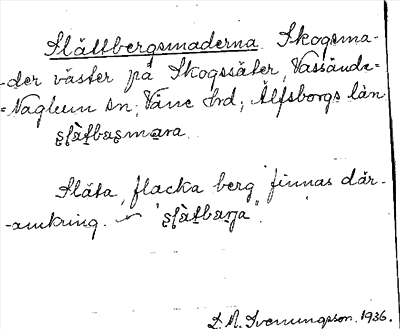 Slättbergsmaderna. Skogsma-
-der väster på Skogssäter, Vassände=
=Naglum sn; Väne hrd; Älfsborgs län
Släta, flacka berg finnas där-
-omkring. –
D. A. Svenningson. 1936.